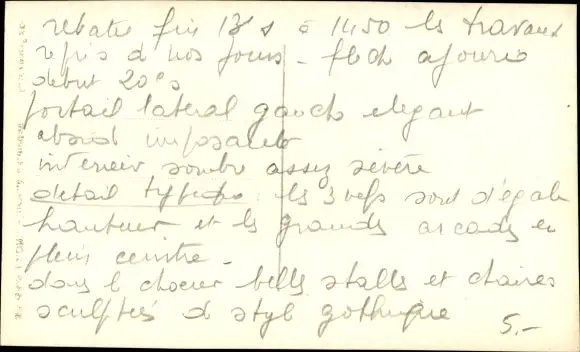 rebatie fin 13es à 1450 les travaux
repris de nos jours - fleche ajourée
debut 20es
portail lateral gauche elegant
abside imposante
interieur sombre assez sévère
detail typique: les 3 nefs sont d'égale
hauteur et les grandes arcades en
plein ceintre -
dans le choeur belles stalles et chaires
sculptées de style gothique
5.-